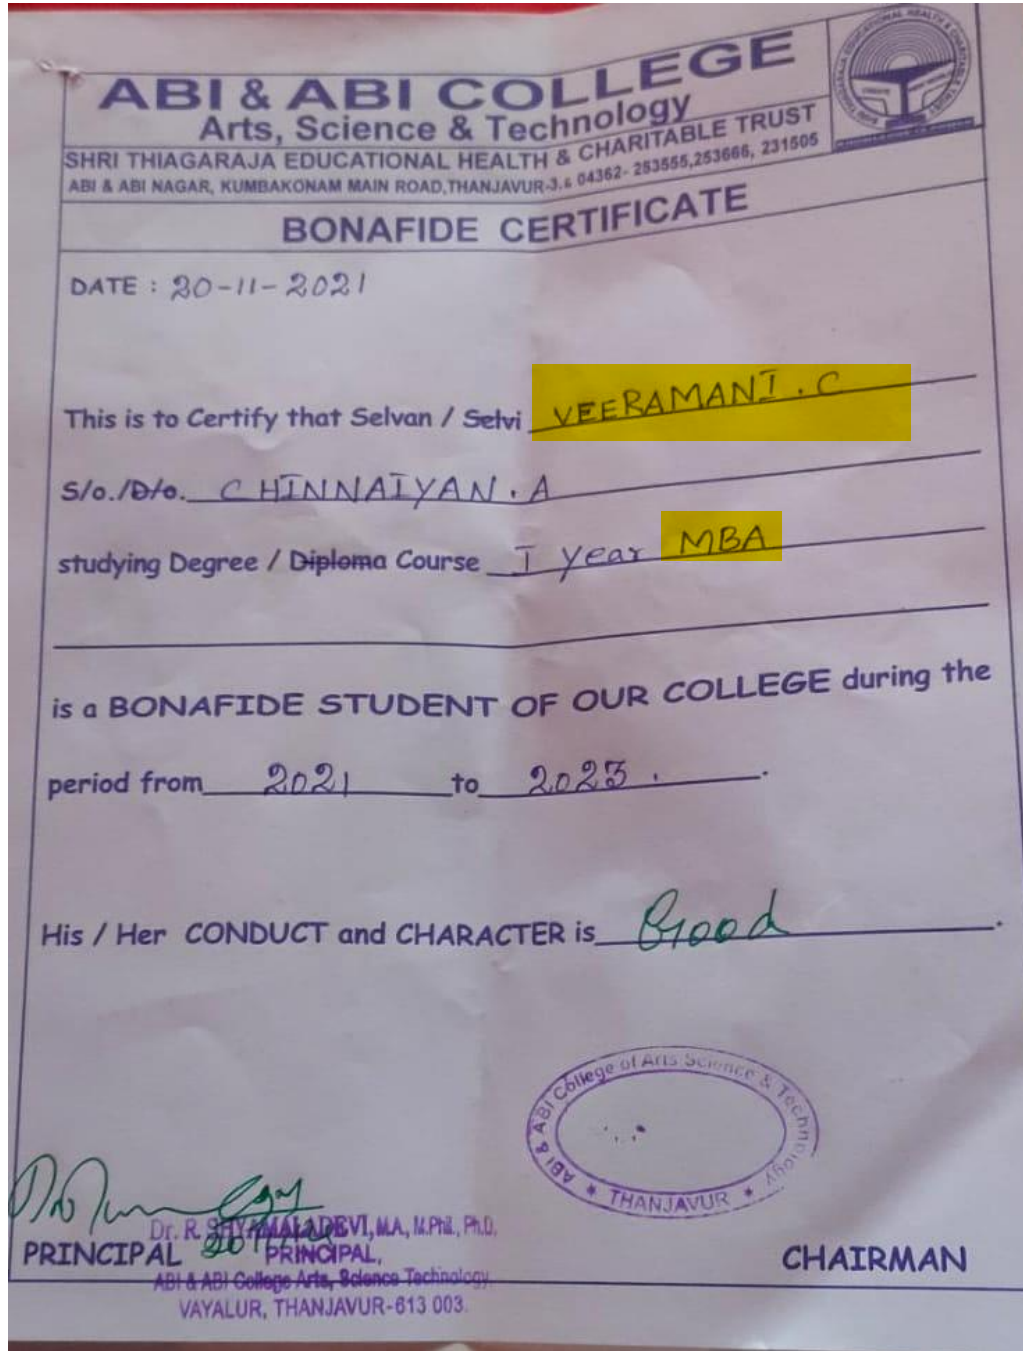 ABI & ABI COLLEGE
Arts, Science & Technology
SHRI THIAGARAJA EDUCATIONAL HEALTH & CHARITABLE TRUST
ABI & ABI NAGAR, KUMBAKONAM MAIN ROAD,THANJAVUR-3. 04362- 253555,253666, 231505
BONAFIDE CERTIFICATE
DATE : 20-11-2021
This is to Certify that Selvan / Selvi VEERAMANI . C
S/o./D/o. CHINNAIYAN . A
studying Degree / Diploma Course I Year MBA
is a BONAFIDE STUDENT OF OUR COLLEGE during the
period from 2021 to 2023 .
His / Her CONDUCT and CHARACTER is Good .
ABI & ABI College of Arts Science & Technology
* THANJAVUR *
Dr. R. SHYAMALADEVI, M.A., M.Phil., Ph.D.
PRINCIPAL PRINCIPAL,
ABI & ABI College Arts, Science Technology
VAYALUR, THANJAVUR-613 003.
CHAIRMAN